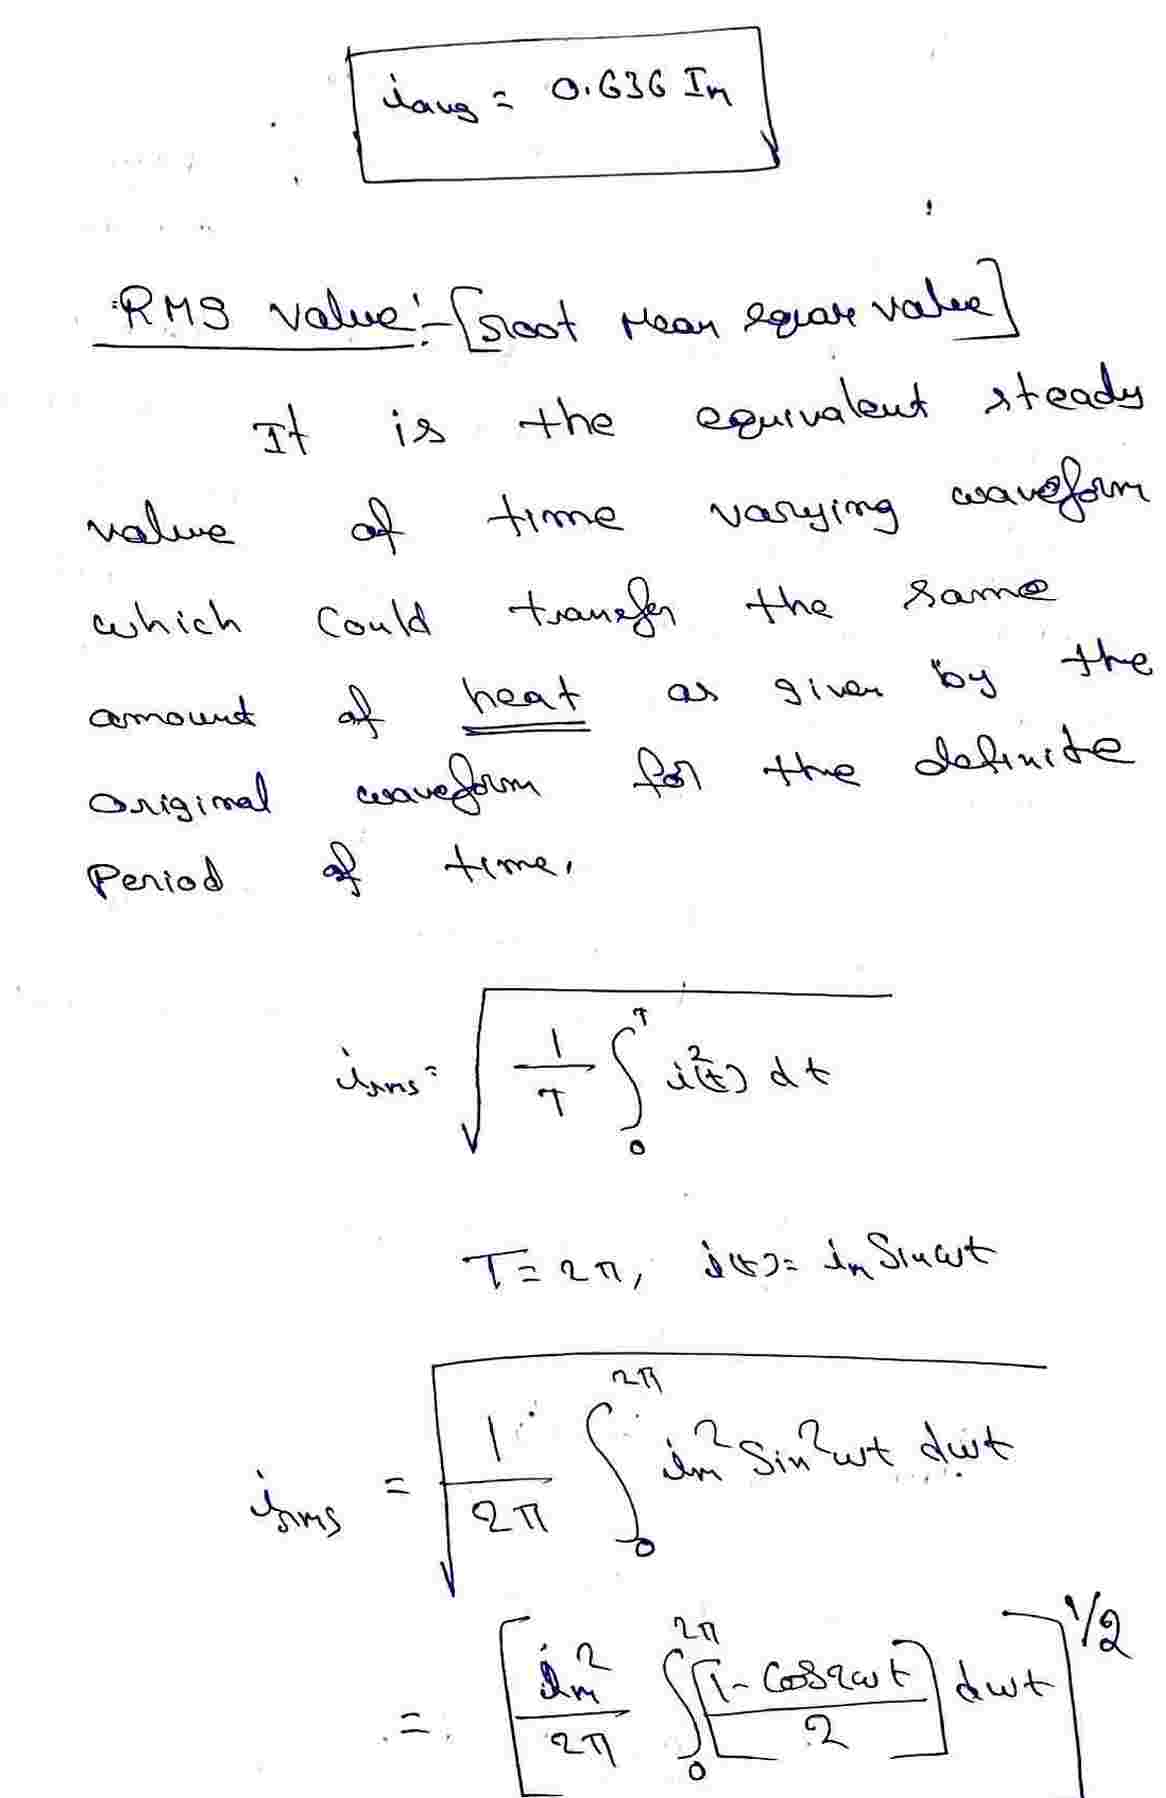 i_avg = 0.636 Im
RMS value:- [root Mean square value]
It is the equivalent steady
value of time varying waveform
which could transfer the same
amount of heat as given by the
original waveform for the definite
Period of time.
i_rms = √( 1/T ∫₀ᵀ i²(t) dt )
T = 2π, i(t) = im Sinωt
i_rms = √( 1/2π ∫₀^2π im² Sin²ωt dωt )
= [ im²/2π ∫₀^2π [ (1 - Cos2ωt)/2 ] dωt ]^1/2